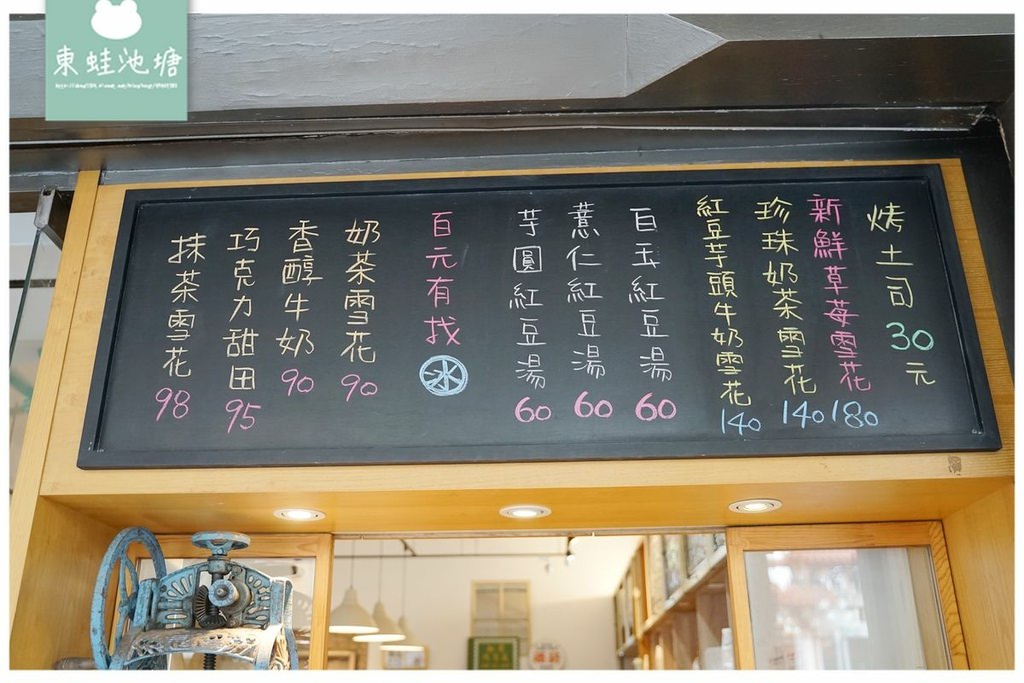 東蛙池塘
烤土司30元
新鮮草莓雪花180
珍珠奶茶雪花140
紅豆芋頭牛奶雪花140
白玉紅豆湯60
薏仁紅豆湯60
芋圓紅豆湯60
百元有找
冰
奶茶雪花90
香醇牛奶90
巧克力甜田95
抹茶雪花98